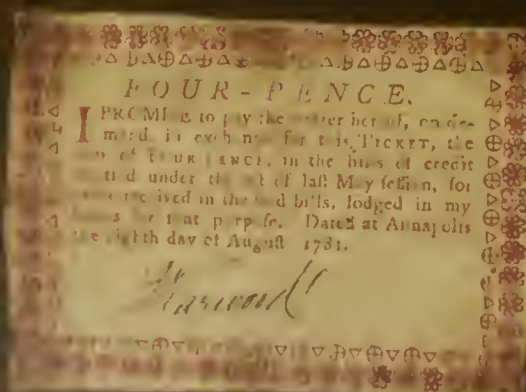 FOUR-PENCE.
I PROMISE to pay the bearer hereof, on de-
mand, in exchange for this TICKET, the
sum of FOUR PENCE, in the bills of credit
emitted under the act of laſt May ſeſſion, for
received in the said bills, lodged in my
hands for that purpoſe. Dated at Annapolis
the eighth day of Auguſt 1781.
Harwood